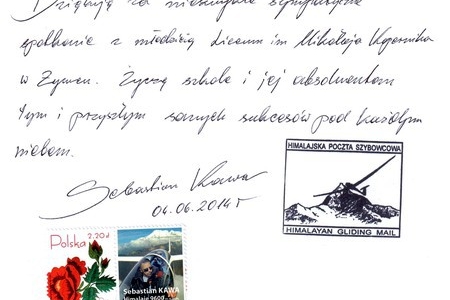 Dziękuję za niezwykle sympatyczne
spotkanie z młodzieżą Liceum im Mikołaja Kopernika
w Żywcu. Życzę szkole i jej absolwentom
tym i przyszłym samych sukcesów pod każdym
niebem.
Sebastian Kawa
04.06.2014 r
HIMALAJSKA POCZTA SZYBOWCOWA
HIMALAYAN GLIDING MAIL
Polska
2,20zł
Sebastian KAWA
Himalaje 9600